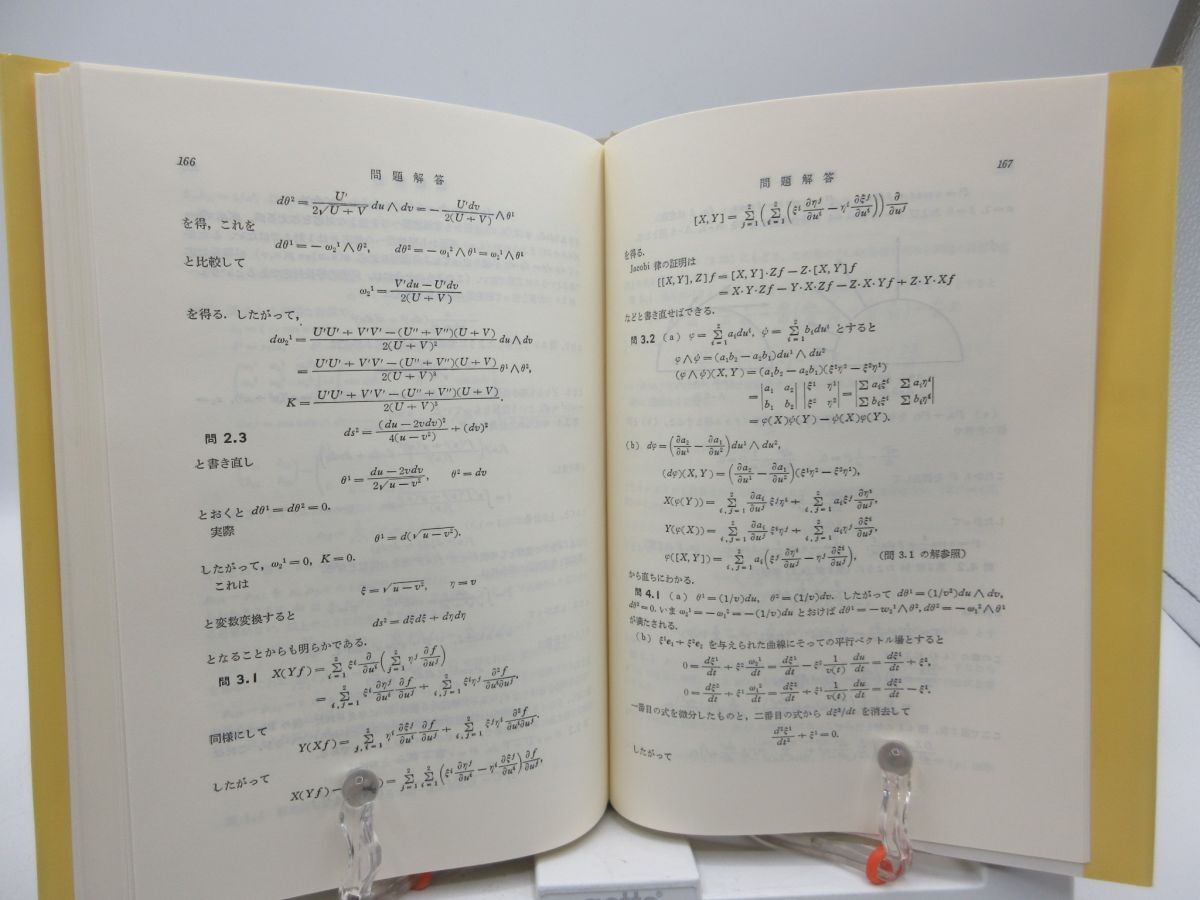 166
問題解答
dθ² = U'/(2√(U+V)) du∧dv = − U'dv/(2(U+V)) ∧θ¹
を得，これを
dθ¹ = −ω₂¹∧θ², dθ² = −ω₁²∧θ¹ = ω₂¹∧θ¹
と比較して
ω₂¹ = (V'du − U'dv)/(2(U+V))
を得る．したがって，
dω₂¹ = (U'U' + V'V' − (U'' + V'')(U+V))/(2(U+V)²) du∧dv
= (U'U' + V'V' − (U'' + V'')(U+V))/(2(U+V)³) θ¹∧θ²,
K = (U'U' + V'V' − (U'' + V'')(U+V))/(2(U+V)³).
問 2.3 ds² = (du − 2vdv)²/(4(u − v²)) + (dv)²
と書き直し
θ¹ = (du − 2vdv)/(2√(u − v²)), θ² = dv
とおくと dθ¹ = dθ² = 0.
実際
θ¹ = d(√(u − v²)).
したがって，ω₂¹ = 0, K = 0.
これは
ξ = √(u − v²), η = v
と変数変換すると
ds² = dξdξ + dηdη
となることからも明らかである．
問 3.1 X(Yf) = Σ_{i=1}^{2} ξⁱ ∂/∂uⁱ (Σ_{j=1}^{2} ηʲ ∂f/∂uʲ)
= Σ_{i,j=1}^{2} ξⁱ ∂ηʲ/∂uⁱ ∂f/∂uʲ + Σ_{i,j=1}^{2} ξⁱηʲ ∂²f/∂uⁱ∂uʲ,
同様にして
Y(Xf) = Σ_{j,i=1}^{2} ηⁱ ∂ξʲ/∂uⁱ ∂f/∂uʲ + Σ_{i,j=1}^{2} ξʲηⁱ ∂²f/∂uⁱ∂uʲ.
したがって
X(Yf) − ) = Σ_{j=1}^{2} Σ_{i=1}^{2} (ξⁱ ∂ηʲ/∂uⁱ − ηⁱ ∂ξʲ/∂uⁱ) ∂f/∂uʲ,
167
問題解答
[X, Y] = Σ_{j=1}^{2} (Σ_{i=1}^{2} (ξⁱ ∂ηʲ/∂uⁱ − ηⁱ ∂ξʲ/∂uⁱ)) ∂/∂uʲ
を得る．
Jacobi 律の証明は
[[X, Y], Z]f = [X, Y]·Zf − Z·[X, Y]f
= X·Y·Zf − Y·X·Zf − Z·X·Yf + Z·Y·Xf
などと書き直せばできる．
問 3.2 (a) φ = Σ_{i=1}^{2} aᵢduⁱ, ψ = Σ_{i=1}^{2} bᵢduⁱ とすると
φ∧ψ = (a₁b₂ − a₂b₁)du¹∧du²
(φ∧ψ)(X, Y) = (a₁b₂ − a₂b₁)(ξ¹η² − ξ²η¹)
= |a₁ a₂; b₁ b₂| |ξ¹ η¹; ξ² η²| = |Σaᵢξⁱ Σaᵢηⁱ; Σbᵢξⁱ Σbᵢηⁱ|
= φ(X)ψ(Y) − ψ(X)φ(Y).
(b) dφ = (∂a₂/∂u¹ − ∂a₁/∂u²)du¹∧du²,
(dφ)(X, Y) = (∂a₂/∂u¹ − ∂a₁/∂u²)(ξ¹η² − ξ²η¹),
X(φ(Y)) = Σ_{i,j=1}^{2} ∂aᵢ/∂uʲ ξʲηⁱ + Σ_{i,j=1}^{2} aᵢξʲ ∂ηⁱ/∂uʲ,
Y(φ(X)) = Σ_{i,j=1}^{2} ∂aᵢ/∂uʲ ξⁱηʲ + Σ_{i,j=1}^{2} aᵢηʲ ∂ξⁱ/∂uʲ,
φ([X, Y]) = Σ_{i,j=1}^{2} aᵢ(ξʲ ∂ηⁱ/∂uʲ − ηʲ ∂ξⁱ/∂uʲ), (問 3.1 の解参照)
から直ちにわかる．
問 4.1 (a) θ¹ = (1/v)du, θ² = (1/v)dv. したがって dθ¹ = (1/v²)du∧dv,
dθ² = 0. いま ω₂¹ = −ω₁² = −(1/v)du とおけば dθ¹ = −ω₂¹∧θ², dθ² = −ω₁²∧θ¹
が満たされる．
(b) ξ¹e₁ + ξ²e₂ を与えられた曲線にそっての平行ベクトル場とすると
0 = dξ¹/dt + ξ² ω₂¹/dt = dξ¹/dt − ξ² 1/v(t) du/dt = dξ¹/dt + ξ²,
0 = dξ²/dt + ξ¹ ω₁²/dt = dξ²/dt + ξ¹ 1/v(t) du/dt = dξ²/dt − ξ¹.
一番目の式を微分したものと，二番目の式から dξ²/dt を消去して
d²ξ¹/dt² + ξ¹ = 0.
したがって